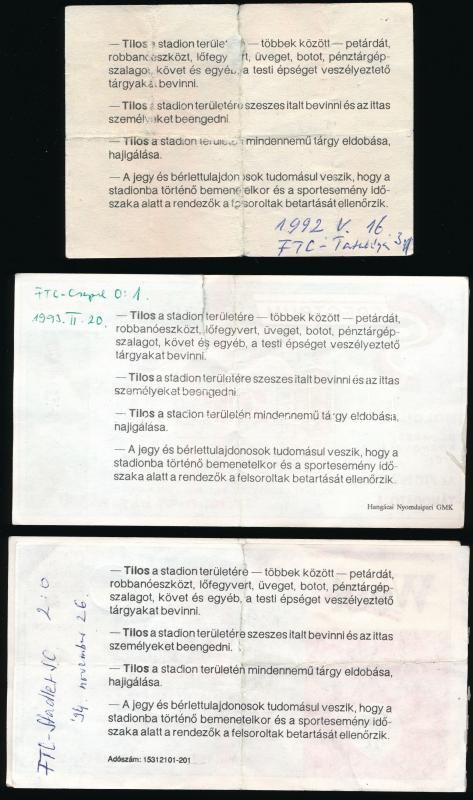 — Tilos a stadion területére — többek között — petárdát,
robbanóeszközt, lőfegyvert, üveget, botot, pénztárgép-
szalagot, követ és egyéb, a testi épséget veszélyeztető
tárgyakat bevinni.
— Tilos a stadion területére szeszes italt bevinni és az ittas
személyeket beengedni.
— Tilos a stadion területén mindennemű tárgy eldobása,
hajigálása.
— A jegy és bérlettulajdonosok tudomásul veszik, hogy a
stadionba történő bemenetelkor és a sportesemény idő-
szaka alatt a rendezők a felsoroltak betartását ellenőrzik.
1992 V. 16.
FTC - Tatabánya
FTC - Csepel 0:1.
1993. II. 20.
— Tilos a stadion területére — többek között — petárdát,
robbanóeszközt, lőfegyvert, üveget, botot, pénztárgép-
szalagot, követ és egyéb, a testi épséget veszélyeztető
tárgyakat bevinni.
— Tilos a stadion területére szeszes italt bevinni és az ittas
személyeket beengedni.
— Tilos a stadion területén mindennemű tárgy eldobása,
hajigálása.
— A jegy és bérlettulajdonosok tudomásul veszik, hogy a
stadionba történő bemenetelkor és a sportesemény idő-
szaka alatt a rendezők a felsoroltak betartását ellenőrzik.
Hangácsi Nyomdaipari GMK
FTC - Stadler SC 2:0
'94. november 26.
— Tilos a stadion területére — többek között — petárdát,
robbanóeszközt, lőfegyvert, üveget, botot, pénztárgép-
szalagot, követ és egyéb, a testi épséget veszélyeztető
tárgyakat bevinni.
— Tilos a stadion területére szeszes italt bevinni és az ittas
személyeket beengedni.
— Tilos a stadion területén mindennemű tárgy eldobása,
hajigálása.
— A jegy és bérlettulajdonosok tudomásul veszik, hogy a
stadionba történő bemenetelkor és a sportesemény idő-
szaka alatt a rendezők a felsoroltak betartását ellenőrzik.
Adószám: 15312101-201